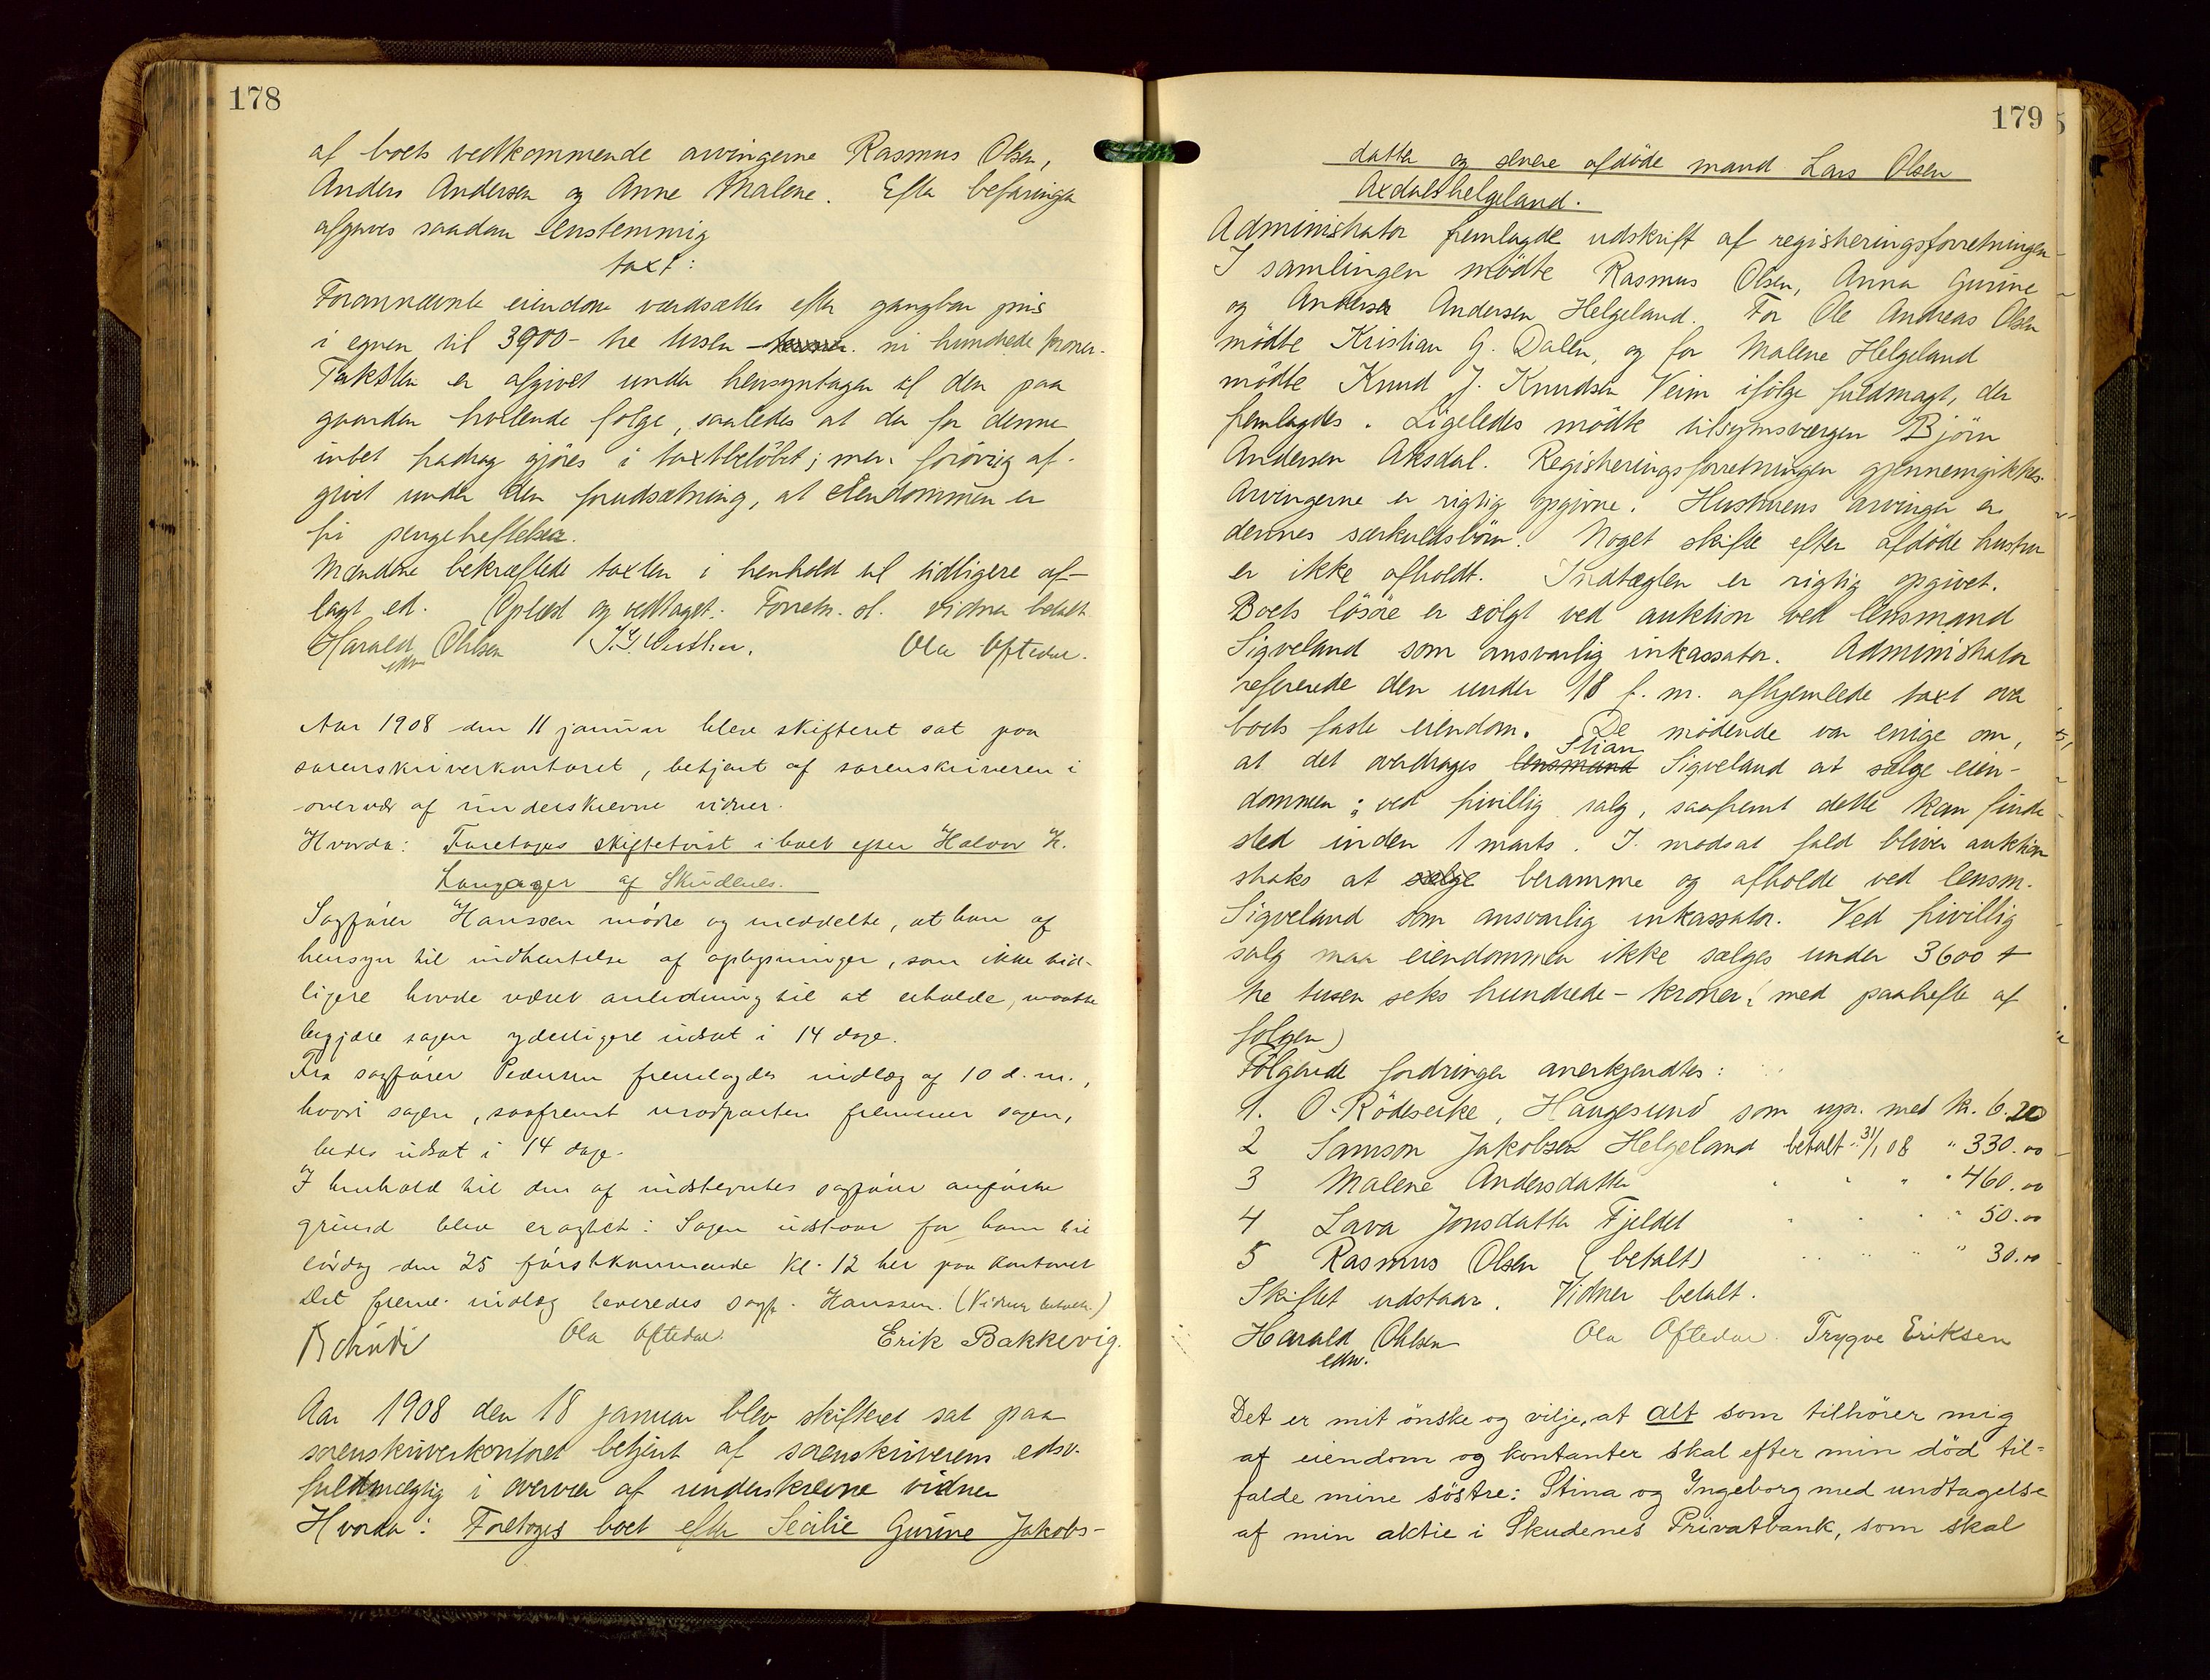 178
af boets vedkommende arvingerne Rasmus Olsen,
Anders Andersen og Anne Malene. Efter befaringen
afgaves saadan enstemmig
taxt:
Forannævnte eiendom værdsættes efter gangbar pris
i egnen til 3900 - tre tusen - ni hundrede kroner.
Taksten er afgivet under hensyntagen til den paa
gaarden hvilende følge, saaledes at der for denne
intet fradrag gjøres i taxtbeløbet; men forøvrig af-
givet under den forudsætning, at eiendommen er
fri pengeheftelser.
Mændene bekræftede taxten i henhold til tidligere af-
lagt ed. Oplæst og vedtaget. Forretn. sl. Vidner betalt.
Harald Ohlsen Ola Oftedal.
edsv.
Aar 1908 den 11 januar blev skifteret sat paa
sorenskriverkontoret, betjent af sorenskriveren i
overvær af underskrevne vidner.
Hvorda: Foretoges skiftetvist i boet efter Halvor H.
Langager af Skudenes.
Sagfører Hanssen mødte og meddelte, at han af
hensyn til indhentelse af oplysninger, som ikke tid-
ligere havde været anledning til at erholde, maatte
begjære sagen yderligere udsat i 14 dage.
Fra sagfører Pedersen fremlagdes indlæg af 10 d.m.,
hvori sagen, saafremt modparten fremmer sagen,
bedes udsat i 14 dage.
I henhold til den af indstevntes sagfører anførte
grund blev eragtet: Sagen udstaar for ham til
lørdag den 25 førstkommende kl. 12 her paa kontoret
Det freml. indlæg leveredes sagf. Hanssen. (Vidner betalt.)
Ola Oftedal. Erik Bakkevig.
Aar 1908 den 18 januar blev skifteret sat paa
sorenskriverkontoret betjent af sorenskriverens edsv.
fuldmægtig i overvær af underskrevne vidner
Hvorda: Foretoges boet efter Secilie Gurine Jakobs-
179
datter og senere afdøde mand Lars Olsen
Axdalshelgeland.
Administrator fremlagde udskrift af registreringsforretningen
I samlingen mødte Rasmus Olsen, Anna Gurine
og Anders Andersen Helgeland. For Ole Andreas Olsen
mødte Kristian G. Dalen, og for Malene Helgeland
mødte Knud J. Knudsen Veim ifølge fuldmagt, der
fremlagdes. Ligeledes mødte tilsynsværgen Bjørn
Andersen Aksdal. Registreringsforretningen gjennemgikkes.
Arvingerne er rigtig opgivne. Hustruens arvinger er
dennes særkuldsbørn. Noget skifte efter afdøde hustru
er ikke afholdt. Indtægten er rigtig opgivet.
Boets løsøre er solgt ved auktion ved lensmand
Sigveland som ansvarlig inkassator. Administrator
refererede den under 18 f.m. afhjemlede taxt over
boets faste eiendom. De mødende var enige om,
Stian
at det overdrages lensmand Sigveland at sælge eien-
dommen ved frivillig salg, saafremt dette kan finde
sted inden 1 marts. I modsat fald bliver auktion
straks at sælge beramme og afholde ved lensm.
Sigveland som ansvarlig inkassator. Ved frivillig
salg maa eiendommen ikke sælges under 3600 -
tre tusen seks hundrede - kroner (med paahefte af
følgen)
Følgende fordringer anerkjendtes:
1. O. Rødeseike, Haugesund som upr. med kr. 6.20
2 Samson Jakobsen Helgeland betalt 31/1 08 " 330.00
3 Malene Andersdatter " " " " 460.00
4 Lava Jonsdatter Fjeldet " " " " 50.00
5 Rasmus Olsen (betalt) " " " " 30.00
Skiftet udstaar. Vidner betalt.
Harald Ohlsen Ola Oftedal. Trygve Eriksen
edsv.
Det er mit ønske og vilje, at alt som tilhører mig
af eiendom og kontanter skal efter min død til=
falde mine søstre: Stina og Ingeborg med undtagelse
af min aktie i Skudenes Privatbank, som skal